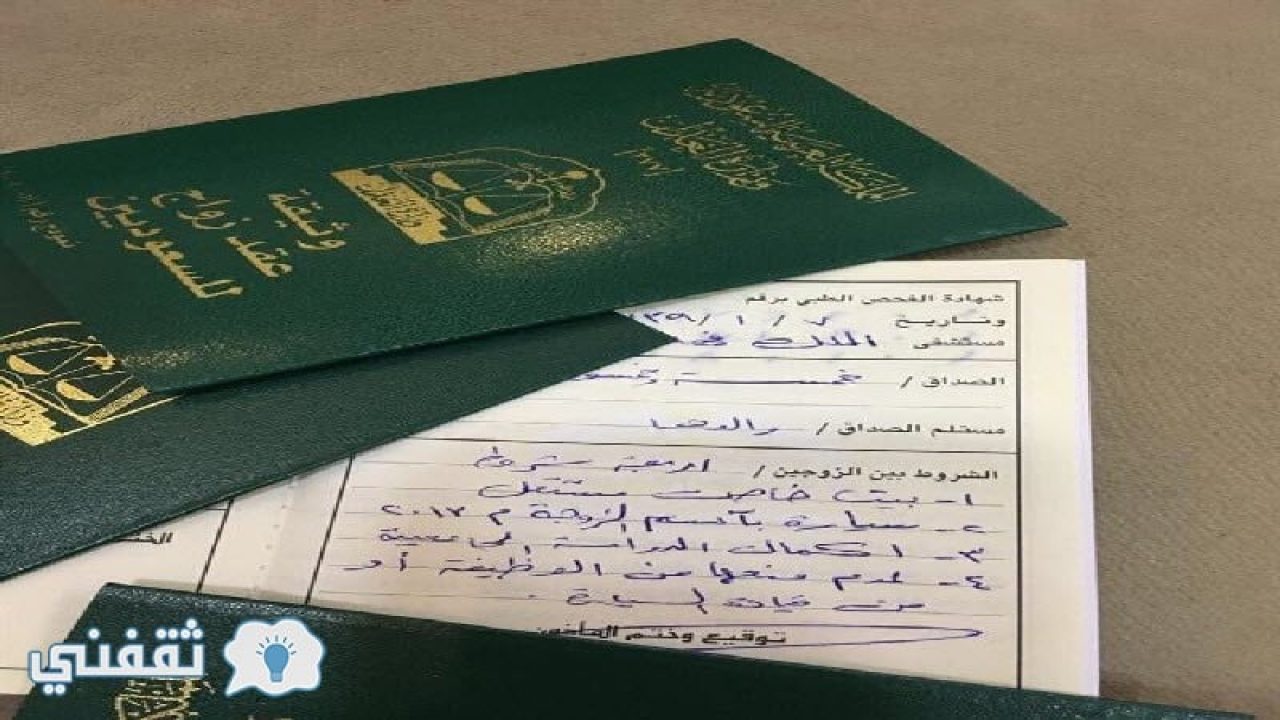 المملكة العربية السعودية
وزارة العدل
وثيقة
عقد زواج
للسعوديين
وزارة العدل
شهادة الفحص الطبي برقم
وتاريخ ٧ / ١ / ٣٩
مستشفى الملك
الصداق / خمسة
مستلم الصداق / والدها
الشروط بين الزوجين / اربعة شروط
١- بيت خاص مستقل
٢- سيارة بآسم الزوجة م ٢٠١٧
٣- اكمال الدراسة الجامعية
٤- عدم منعها من الوظيفة أو
من قيادة السيارة .
توقيع وختم المأذون
ثقفني